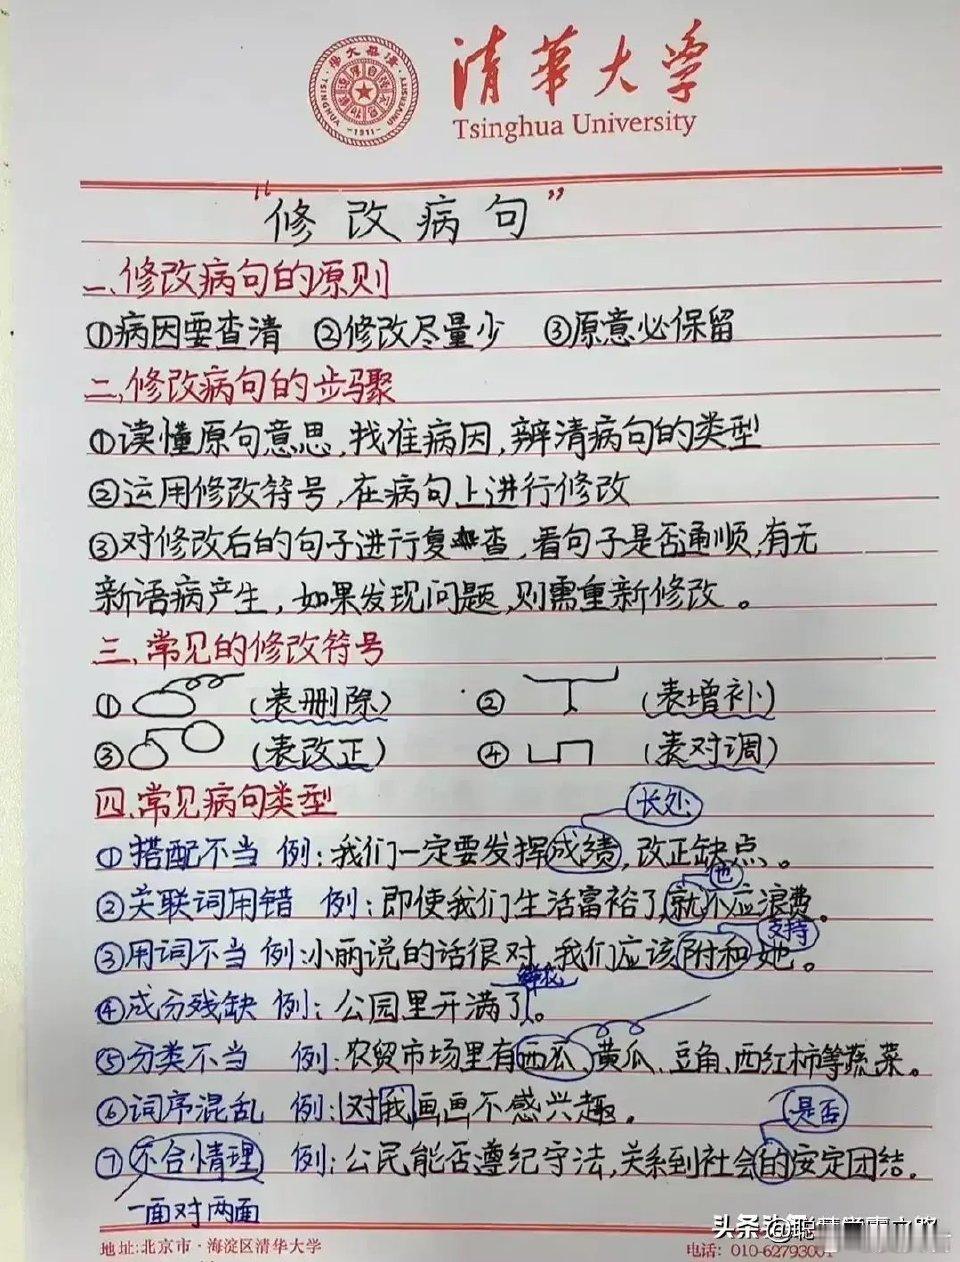 清华大学
Tsinghua University
TSINGHUA UNIVERSITY
-1911-
“修改病句”
一、修改病句的原则
①病因要查清 ②修改尽量少 ③原意必保留
二、修改病句的步骤
①读懂原句意思,找准病因,辨清病句的类型
②运用修改符号,在病句上进行修改
③对修改后的句子进行复查,看句子是否通顺,有无
新语病产生,如果发现问题,则需重新修改。
三、常见的修改符号
① (表删除) ② (表增补)
③ (表改正) ④ (表对调)
四、常见病句类型
长处
①搭配不当 例:我们一定要发挥成绩,改正缺点。
也
②关联词用错 例:即使我们生活富裕了,就不应浪费。
支持
③用词不当 例:小丽说的话很对,我们应该附和她。
鲜花
④成分残缺 例:公园里开满了。
⑤分类不当 例:农贸市场里有西瓜、黄瓜、豆角、西红柿等蔬菜。
⑥词序混乱 例:对我画画不感兴趣。
是否
⑦不合情理 例:公民能否遵纪守法,关系到社会的安定团结。
一面对两面
地址:北京市·海淀区清华大学
电话: 010-6279300
头条
@聪